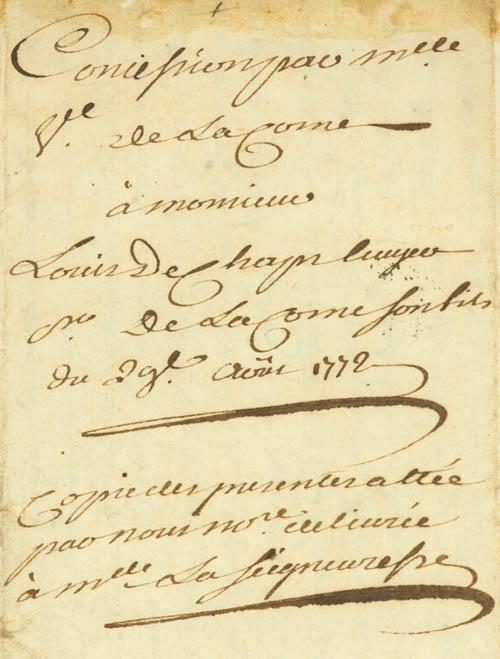 Concession par mde
Ve. de La Corne
à monsieur
Louis De Chapt Ecuyer
De La Corne son fils
du 29e. Août 1772
Copie des presentes attée
par nous nore. delivrée
à mde La Seigneuresse